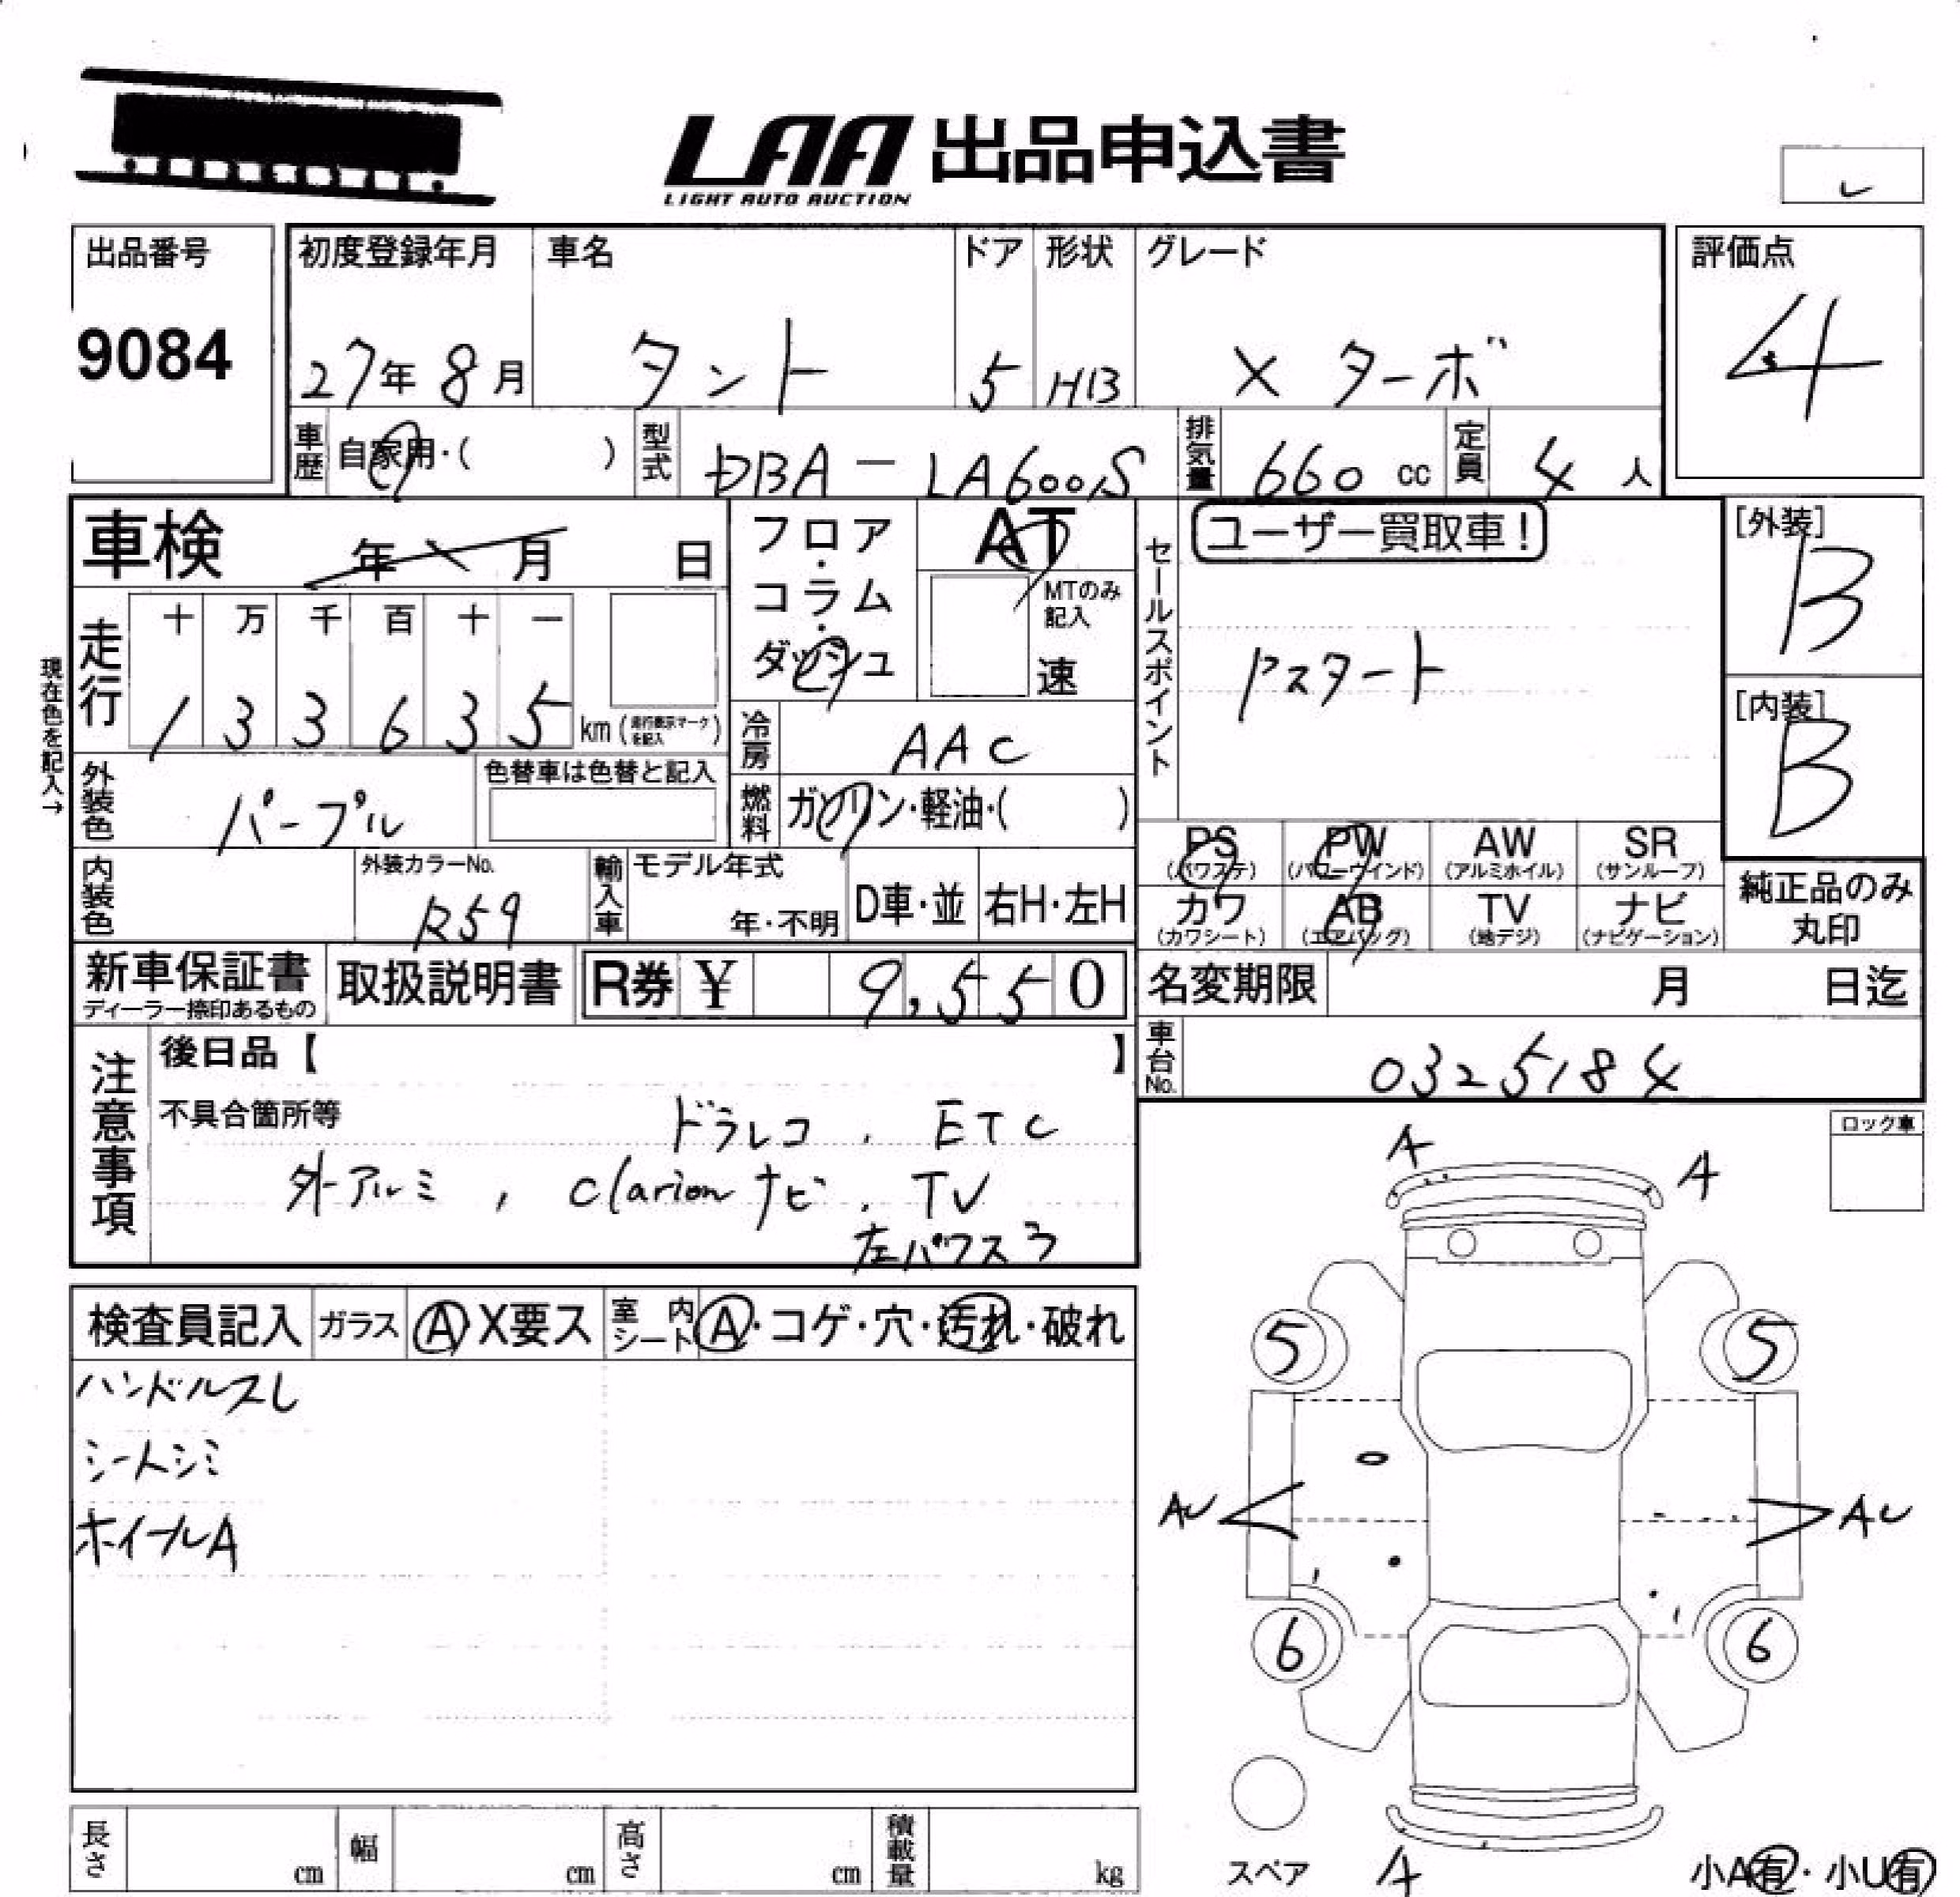 LAA 出品申込書
LIGHT AUTO AUCTION
出品番号
9084
初度登録年月 車名 ドア 形状 グレード
27年 8月 タント 5 HB X ターボ
評価点
4
車歴 自家用・( ) 型式 DBA-LA600S 排気量 660 cc 定員 4 人
車検 年 月 日
フロア・コラム・ダッシュ
AT
MTのみ記入
速
セールスポイント
ユーザー買取車!
Pスタート
[外装]
B
[内装]
B
現在色を記入→
走行 十 万 千 百 十 一
1 3 3 6 3 5 km (走行表示マークを記入)
冷房 AAC
外装色 パープル
色替車は色替と記入
燃料 ガソリン・軽油・( )
PS (パワステ) PW (パワーウインド) AW (アルミホイル) SR (サンルーフ)
カワ (カワシート) AB (エアバッグ) TV (地デジ) ナビ (ナビゲーション)
純正品のみ丸印
内装色
外装カラーNo.
R59
輸入車 モデル年式
年・不明 D車・並 右H・左H
新車保証書 取扱説明書 R券 ¥ 9,550
ディーラー捺印あるもの
名変期限 月 日迄
車台No. 0325184
注意事項
後日品【 】
不具合箇所等 ドラレコ、ETC
外アルミ, Clarionナビ、TV
左パワスラ
ロック車
A A
検査員記入 ガラス A X要ス 室内シート A・コゲ・穴・汚れ・破れ
ハンドルスレ
シートシミ
ホイールA
5 5
AU AU
6 6
スペア A
小A有・小U有
長さ cm 幅 cm 高さ cm 積載量 kg